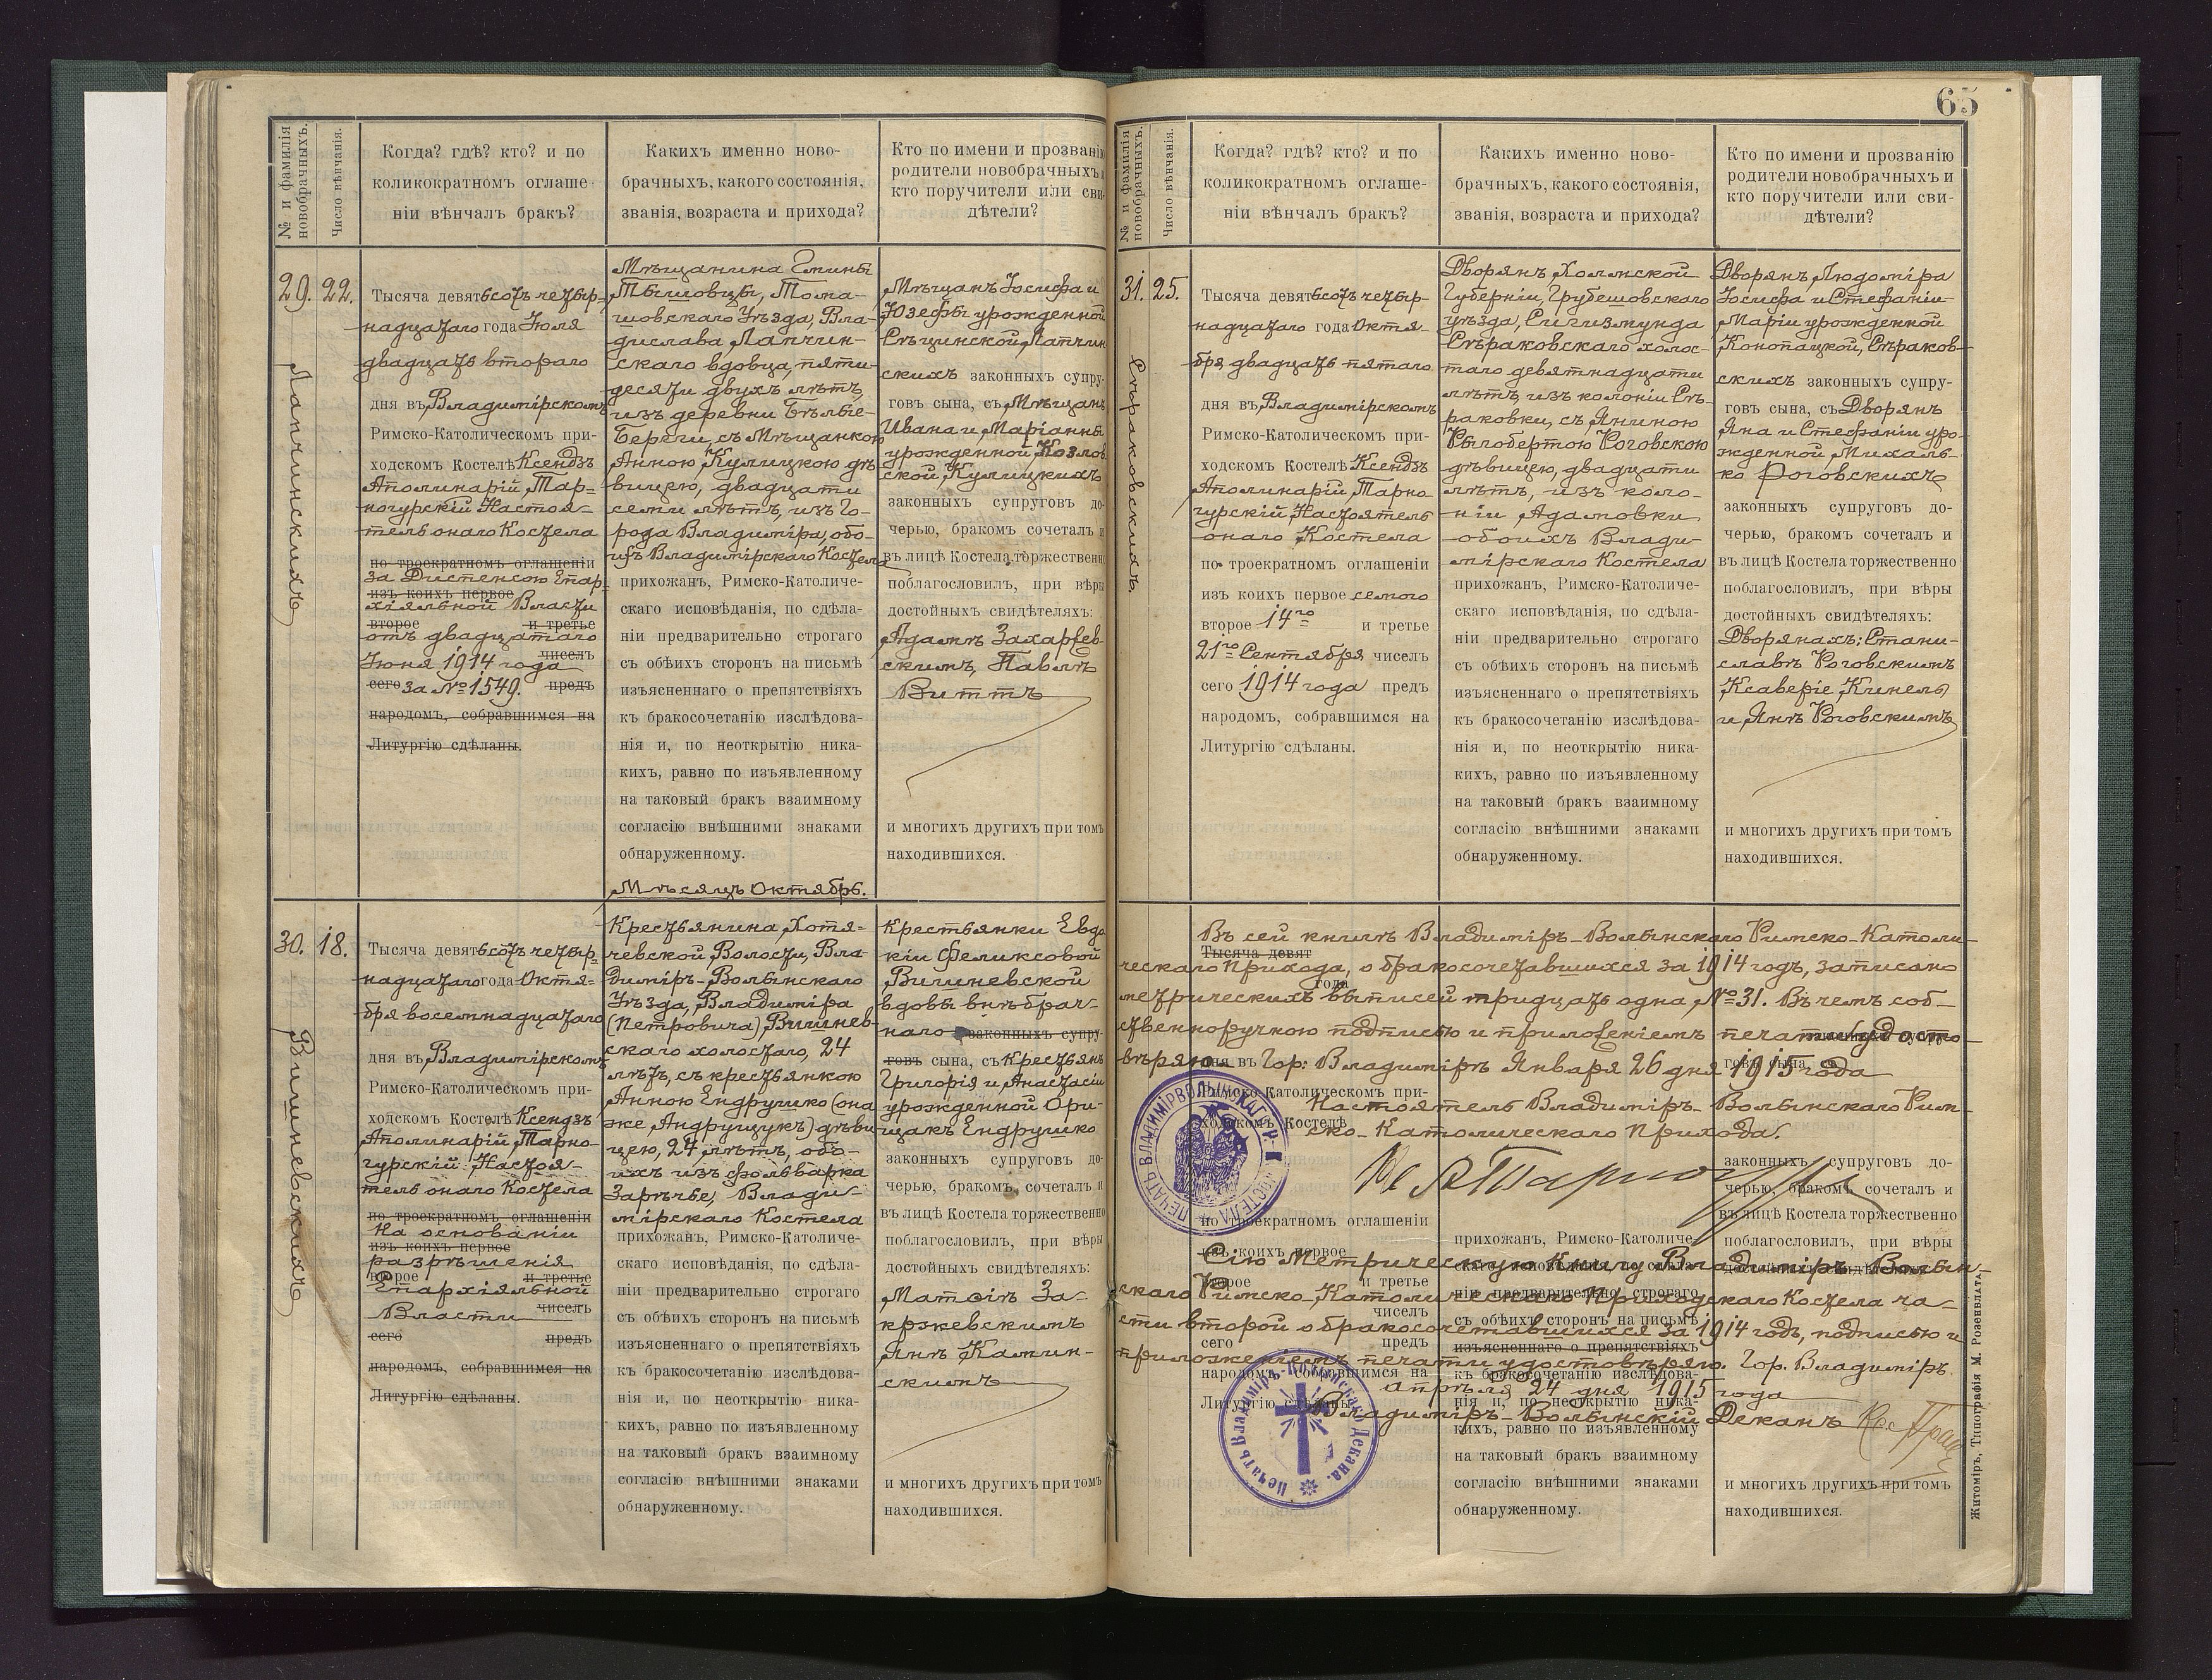 65
№ и фамилія
новобрачныхъ.
Число вѣнчанія.
Когда? гдѣ? кто? и по
коликократномъ оглаше-
ніи вѣнчалъ бракъ?
Какихъ именно ново-
брачныхъ, какого состоянія,
званія, возраста и прихода?
Кто по имени и прозванію
родители новобрачныхъ и
кто поручители или сви-
дѣтели?
29.
22.
Лапчинскихъ
Тысяча девятьсотъ четыр-
надцатаго года Іюля
двадцать втораго
дня въ Владимірскомъ
Римско-Католическомъ при-
ходскомъ Костелѣ Ксендзъ
Аполинарій Тар=
ногурскій Настоя-
тель онаго Костела
по троекратномъ оглашеніи
за Диспенсою Епар=
изъ коихъ первое
хіяльной Власти
второе и третье
отъ двадцатаго
чиселъ
Іюня 1914 года
сего за № 1549. предъ
народомъ, собравшимся на
Литургію сдѣланы.
Мѣщанина Гмины
Тышовцы, Тома-
шовскаго Уѣзда, Вла-
дислава Лапчин-
скаго вдовца, пяти-
десяти двухъ лѣтъ,
изъ деревни Бѣлые-
Береги, съ Мѣщанкою
Анною Кулицкою дѣ-
вицею, двадцати
семи лѣтъ, изъ Го-
рода Владиміра, обо-
ихъ Владимірскаго Костела
прихожанъ, Римско-Католиче-
скаго исповѣданія, по сдѣла-
ніи предварительно строгаго
съ обѣихъ сторонъ на письмѣ
изъясненнаго о препятствіяхъ
къ бракосочетанію изслѣдова-
нія и, по неоткрытію ника-
кихъ, равно по изъявленному
на таковый бракъ взаимному
согласію внѣшними знаками
обнаруженному.
Мѣщанъ Іосифа и
Юзефы урожденной
Сѣцинской, Лапчин
скихъ законныхъ супру-
говъ сына, съ Мѣщанъ
Ивана и Маріанны
урожденной Козлов
ской, Кулицкихъ
законныхъ супруговъ до-
черью, бракомъ сочеталъ и
въ лицѣ Костела торжественно
поблагословилъ, при вѣры
достойныхъ свидѣтеляхъ:
Адамѣ Захарев-
скимъ, Павлѣ
Виттъ
и многихъ другихъ при томъ
находившихся.
Мѣсяцъ Октябрь.
30.
18.
Вишневскихъ
Тысяча девятьсотъ четыр-
надцатаго года Октя=
бря восемнадцатаго
дня въ Владимірскомъ
Римско-Католическомъ при-
ходскомъ Костелѣ Ксендзъ
Аполинарій Тарно-
гурскій Настоя-
тель онаго Костела
по троекратномъ оглашеніи
На основаніи
изъ коихъ первое
разрѣшенія
второе и третье
Епархіяльной
чиселъ
Власти
сего предъ
народомъ, собравшимся на
Литургію сдѣланы.
Крестьянина, Хотя=
чевской Волости, Вла-
диміръ-Волынскаго
Уѣзда, Владиміра
(Петровича) Вишнев-
скаго холостаго, 24
лѣтъ, съ крестьянкою
Анною Ендрушко (она
же Андрущукъ) дѣви
цею, 24 лѣтъ, обо-
ихъ изъ фольварка
Зарѣчье, Влади-
мірскаго Костела
прихожанъ, Римско-Католиче-
скаго исповѣданія, по сдѣла-
ніи предварительно строгаго
съ обѣихъ сторонъ на письмѣ
изъясненнаго о препятствіяхъ
къ бракосочетанію изслѣдова-
нія и, по неоткрытію ника-
кихъ, равно по изъявленному
на таковый бракъ взаимному
согласію внѣшними знаками
обнаруженному.
Крестьянки Евдо
кіи Феликсовой
Вишневской
вдовы внѣбрач-
наго законныхъ супру-
говъ сына, съ Крестьянъ
Григорія и Анастасіи
урожденной Ори-
щакъ Ендрушко
законныхъ супруговъ до-
черью, бракомъ сочеталъ и
въ лицѣ Костела торжественно
поблагословилъ, при вѣры
достойныхъ свидѣтеляхъ:
Матвіѣ За-
кржевскимъ
Янѣ Камин-
скимъ
и многихъ другихъ при томъ
находившихся.
№ и фамилія
новобрачныхъ.
Число вѣнчанія.
Когда? гдѣ? кто? и по
коликократномъ оглаше-
ніи вѣнчалъ бракъ?
Какихъ именно ново-
брачныхъ, какого состоянія,
званія, возраста и прихода?
Кто по имени и прозванію
родители новобрачныхъ и
кто поручители или сви-
дѣтели?
31.
25.
Сѣраковскихъ
Тысяча девятьсотъ четыр-
надцатаго года Октя-
бря двадцать пятаго
дня въ Владимірскомъ
Римско-Католическомъ при-
ходскомъ Костелѣ Ксендзъ
Аполинарій Тарно-
гурскій Настоятель
онаго Костела
по троекратномъ оглашеніи
изъ коихъ первое семого
второе 14го и третье
21го Сентября чиселъ
сего 1914 года предъ
народомъ, собравшимся на
Литургію сдѣланы.
Дворянъ Холмской
Губерніи, Грубешовскаго
уѣзда, Сигизмунда
Сѣраковскаго холос-
таго девятнадцати
лѣтъ, изъ колоніи Сѣ-
раковки, съ Яниною
Рыгобертою Роговскою
дѣвицею, двадцати
лѣтъ, изъ коло-
ніи Адамовки
обоихъ Влади-
мірскаго Костела
прихожанъ, Римско-Католиче-
скаго исповѣданія, по сдѣла-
ніи предварительно строгаго
съ обѣихъ сторонъ на письмѣ
изъясненнаго о препятствіяхъ
къ бракосочетанію изслѣдова-
нія и, по неоткрытію ника-
кихъ, равно по изъявленному
на таковый бракъ взаимному
согласію внѣшними знаками
обнаруженному.
Дворянъ, Людоміра
Іосифа и Стефаніи-
Маріи урожденной
Конопацкой, Сѣраков-
скихъ законныхъ супру-
говъ сына, съ Дворянъ
Яна и Стефаніи уро-
жденной Михаль-
ко Роговскихъ
законныхъ супруговъ до-
черью, бракомъ сочеталъ и
въ лицѣ Костела торжественно
поблагословилъ, при вѣры
достойныхъ свидѣтеляхъ:
Дворянахъ: Стани-
славѣ Роговскимъ
Ксаверіе Кинель
и Янѣ Роговскимъ
и многихъ другихъ при томъ
находившихся.
Въ сей книгѣ Владиміръ-Волынскаго Римско-Католи-
Тысяча девят
ческаго Прихода, о бракосочетавшихся за 1914 годъ, записано
года
метрическихъ выписей тридцать одна, № 31. Въ чемъ соб-
ственноручною подписью и приложеніемъ печати удосто-
вѣряю. Гор: Владиміръ Января 26 дня 1915 года
дня въ
говъ сына
Римско-Католическомъ при-
Настоятель Владиміръ-Волынскаго Рим-
ходскомъ Костелѣ
ско-Католическаго Прихода:
законныхъ супруговъ до-
черью, бракомъ сочеталъ и
въ лицѣ Костела торжественно
по троекратномъ оглашеніи
прихожанъ, Римско-Католиче-
поблагословилъ, при вѣры
изъ коихъ первое
Сію Метрическую Книгу Владиміръ-Волын-
второе и третье
скаго Римско-Католическаго Приходскаго Костела ча-
ніи предварительно строгаго
чиселъ
съ обѣихъ сторонъ на письмѣ
сти второй о бракосочетавшихся за 1914 годъ, подписью и
сего предъ
изъясненнаго о препятствіяхъ
приложеніемъ печати удостовѣряю. Гор. Владиміръ
народомъ, собравшимся на
къ бракосочетанію изслѣдова-
апрѣля 24 дня 1915 года
Литургію сдѣланы
нія и, по неоткрытію ника-
Владиміръ-Волынскій Деканъ
кихъ, равно по изъявленному
на таковый бракъ взаимному
согласію внѣшними знаками
обнаруженному.
и многихъ другихъ при томъ
находившихся.
Печать Владиміръ-Волынскаго Декана.
Житоміръ, Типографія М. Розенблата.